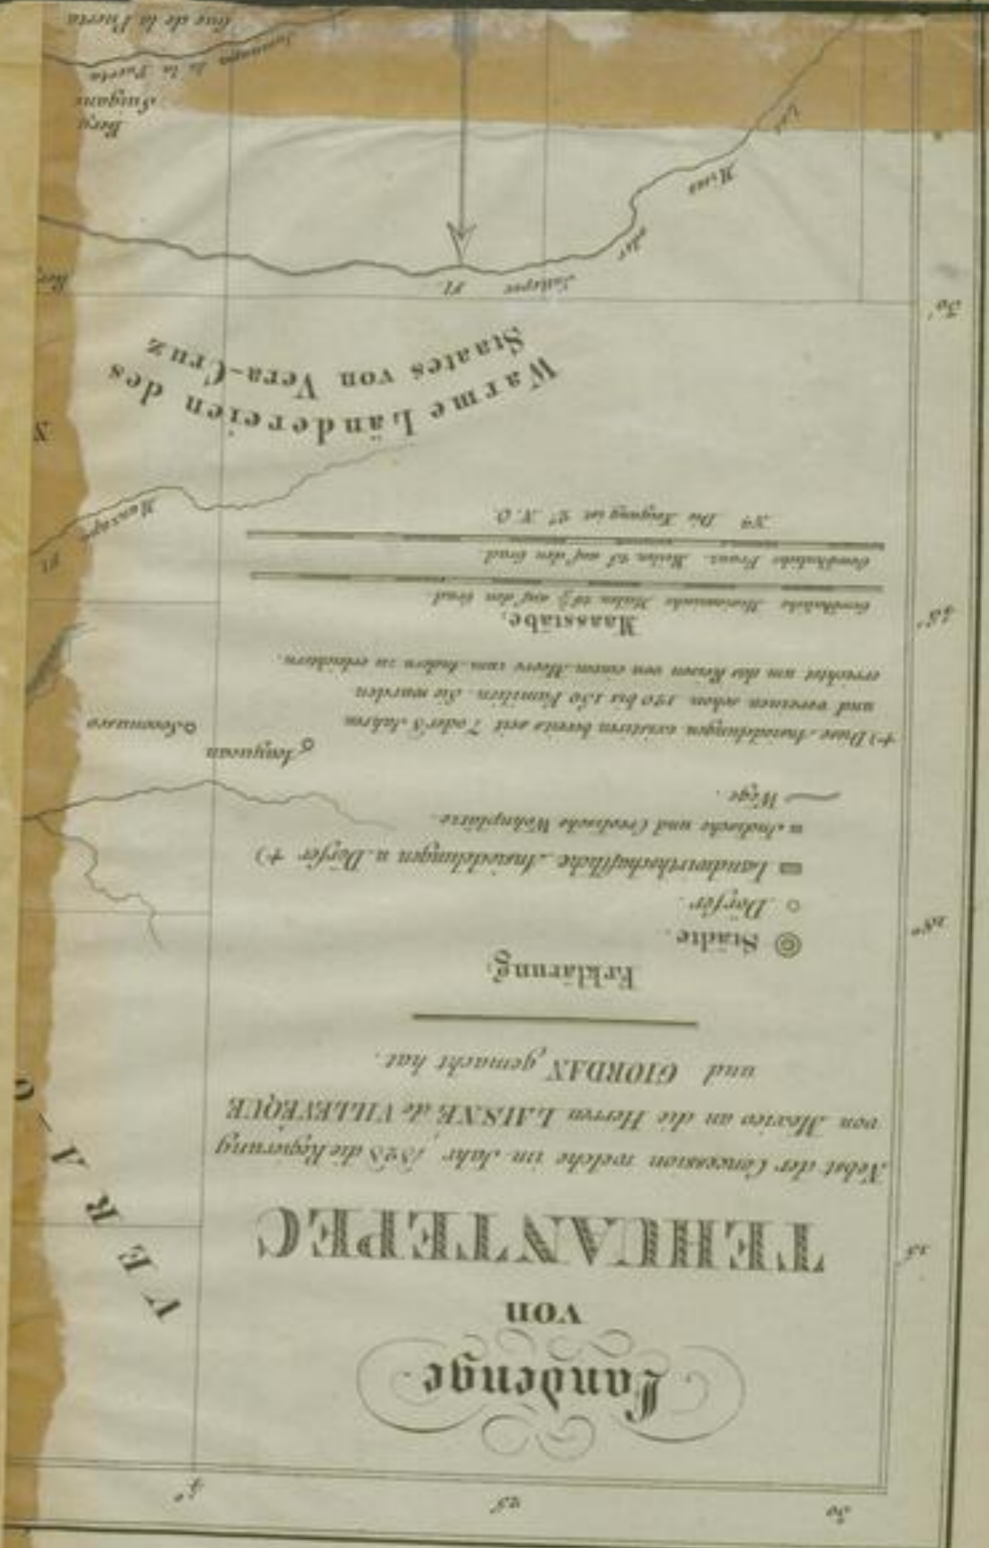 30
25
4°
Landenge
von
TEHUANTEPEC
15
Nebst der Concession welche im Jahr 1828 die Regierung
von Mexico an die Herren LAISNE de VILLEVEQUE
und GIORDAN gemacht hat.
VERA-
18°
Erklärung;
Städte.
Dörfer.
Landwirthschaftliche Ansiedelungen u. Dörfer †)
Indische und Creolische Wohnplätze.
Wege.
†) Diese Ansiedelungen existiren bereits seit 7 oder 8 Jahren
und vereinen schon 120 bis 150 Familien. Sie wurden
errichtet um das Reisen von einem Meere zum Andern zu erleichtern.
45'
Maasstäbe,
Gewöhnliche Mexicanische Meilen auf den Grad.
Gewöhnliche Franz. Meilen 25 auf den Grad.
Die Neigung ist N.O.
Fl.
Warme Ländereien des
Staates von Vera-Cruz
N
30'
Fl.
oder
Berg